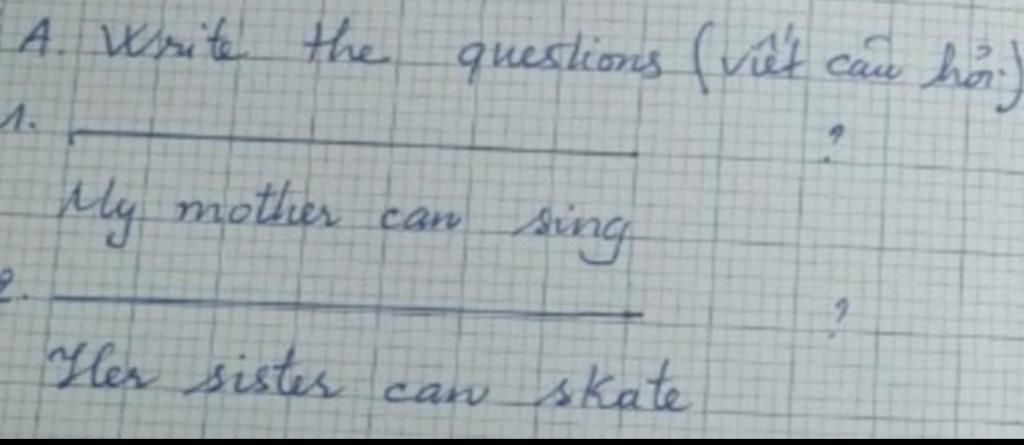 A. Write the questions (viết câu hỏi)
1. ?
My mother can sing
2. ?
Her sister can skate